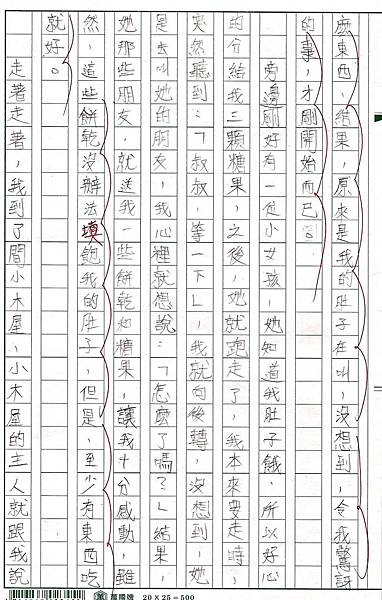 麼東西，結果，原來是我的肚子在叫，沒想到，令我驚訝
的事，才剛開始而已。
旁邊剛好有一位小女孩，她知道我肚子餓，所以好心
的分給我三顆糖果，之後，她就跑走了，我本來要走時，
突然聽到：「叔叔，等一下」，我就向後轉，沒想到，她
是去叫她的朋友，我心裡就想說：「怎麼了嗎？」結果，
她那些朋友，就送我一些餅乾和糖果，讓我十分感動，雖
然，這些餅乾沒辦法填飽我的肚子，但是，至少有東西吃
就好。
走著走著，我到了間小木屋，小木屋的主人就跟我說
萬陽號 20×25＝500